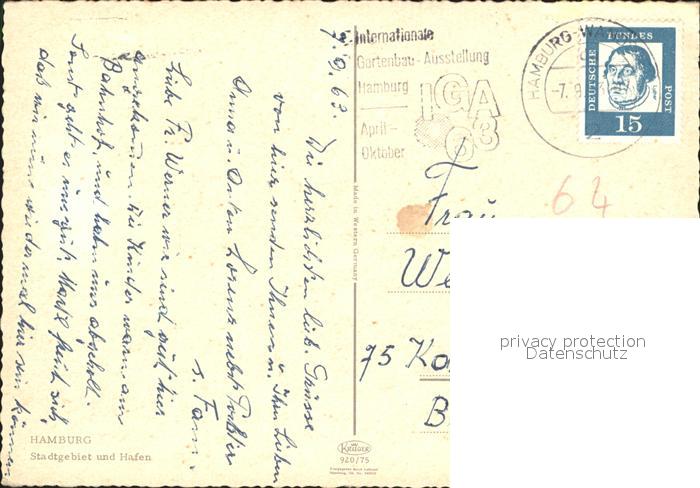 7.9.63.
Die herzlichsten lieb. Grüsse
von hier senden Ihnen u. Ihren Lieben
Anna u. Anton Lorenz nebst
s. Fam.
Liebe Fr. Werner wir sind gut hier
angekommen die Kinder waren am
Bahnhof, und haben uns abgeholt.
Sonst geht es uns gut, freut sich
das wir wieder mal hier sein können
HAMBURG
Stadtgebiet und Hafen
Made in Western Germany
Krüger
920/75
Internationale
Gartenbau-Ausstellung
Hamburg
April-
Oktober
IGA
63
HAMBURG-WA
-7.9
2
DEUTSCHE
BUNDES
POST
15
64
Frau
We
75 Ka
B
privacy protection
Datenschutz